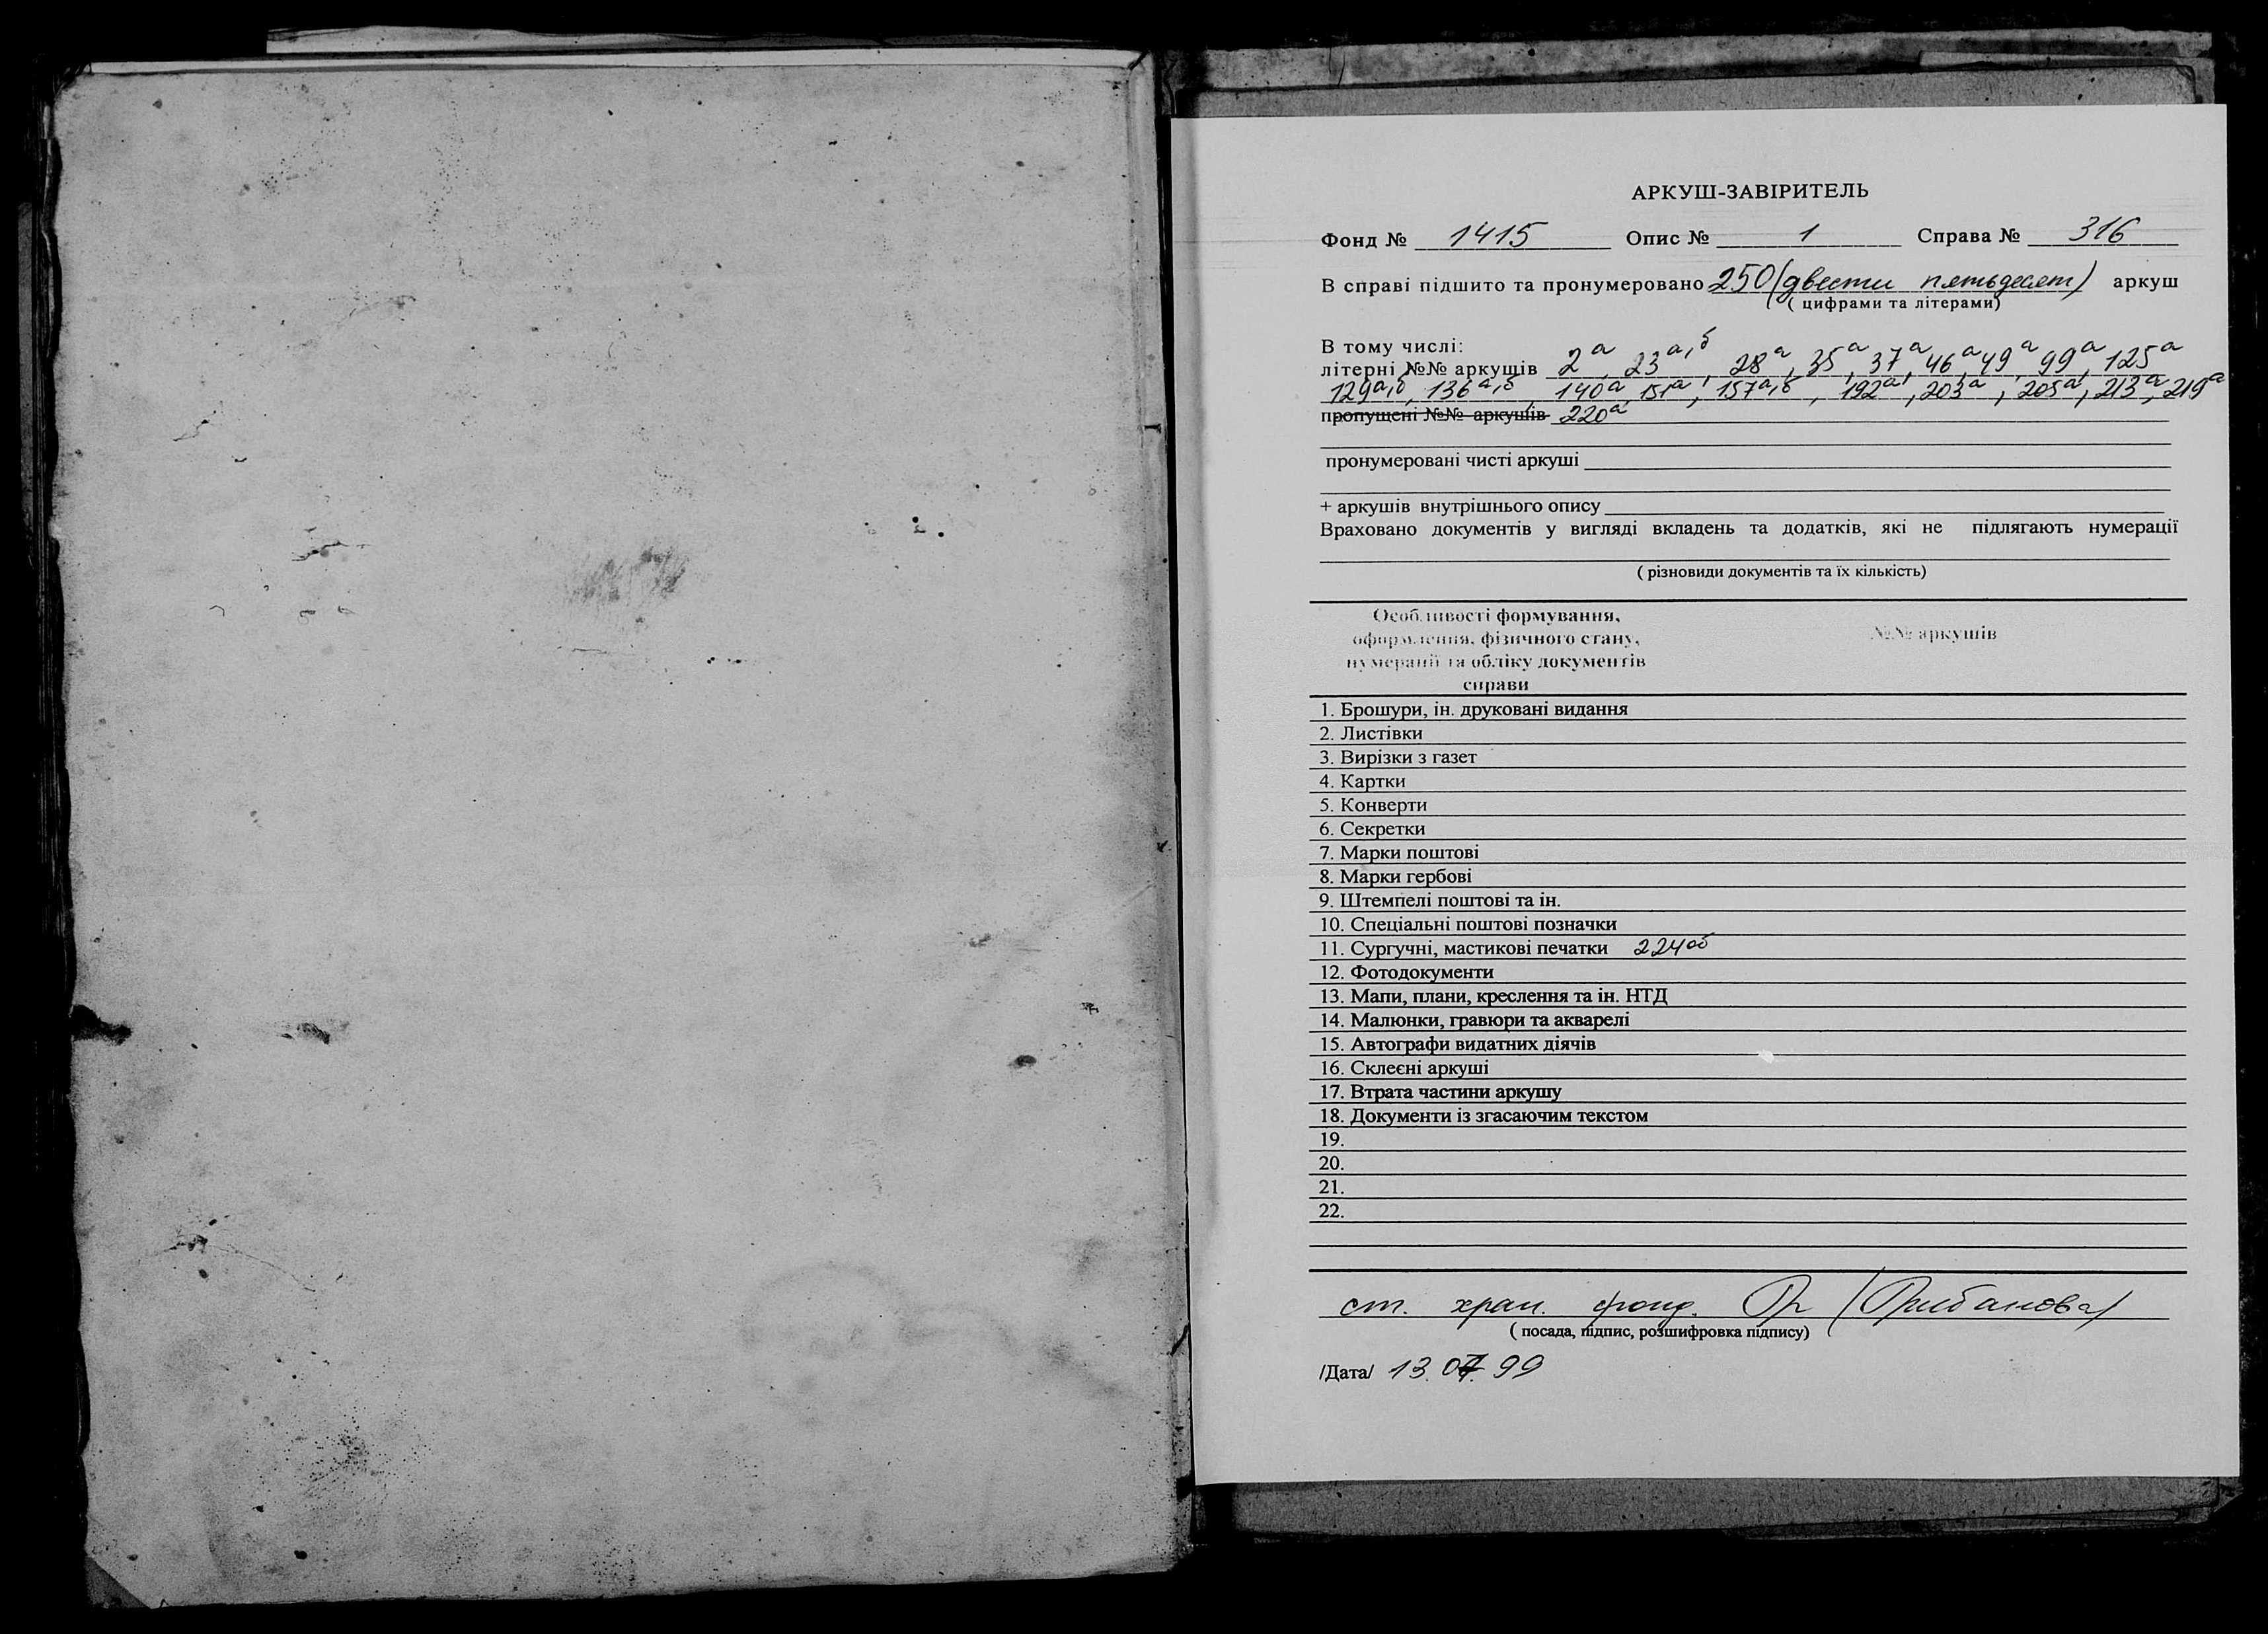 АРКУШ-ЗАВІРИТЕЛЬ
Фонд № 1415 Опис № 1 Справа № 316
В справі підшито та пронумеровано 250 (двести пятьдесят) аркуш
( цифрами та літерами)
В тому числі:
літерні №№ аркушів 2а, 23а,б, 28а, 35а, 37а, 46а, 49а, 99а, 125а
129а,б, 136а,б, 140а, 151а, 157а,б, 192а, 203а, 205а, 213а, 219а
пропущені №№ аркушів 220а
пронумеровані чисті аркуші
+ аркушів внутрішнього опису
Враховано документів у вигляді вкладень та додатків, які не підлягають нумерації
( різновиди документів та їх кількість)
Особливості формування, №№ аркушів
оформлення, фізичного стану,
нумерації та обліку документів
справи
1. Брошури, ін. друковані видання
2. Листівки
3. Вирізки з газет
4. Картки
5. Конверти
6. Секретки
7. Марки поштові
8. Марки гербові
9. Штемпелі поштові та ін.
10. Спеціальні поштові позначки
11. Сургучні, мастикові печатки 224об
12. Фотодокументи
13. Мапи, плани, креслення та ін. НТД
14. Малюнки, гравюри та акварелі
15. Автографи видатних діячів
16. Склеєні аркуші
17. Втрата частини аркушу
18. Документи із згасаючим текстом
19.
20.
21.
22.
ст. хран. фонд.
( посада, підпис, розшифровка підпису)
/Дата/ 13. 99